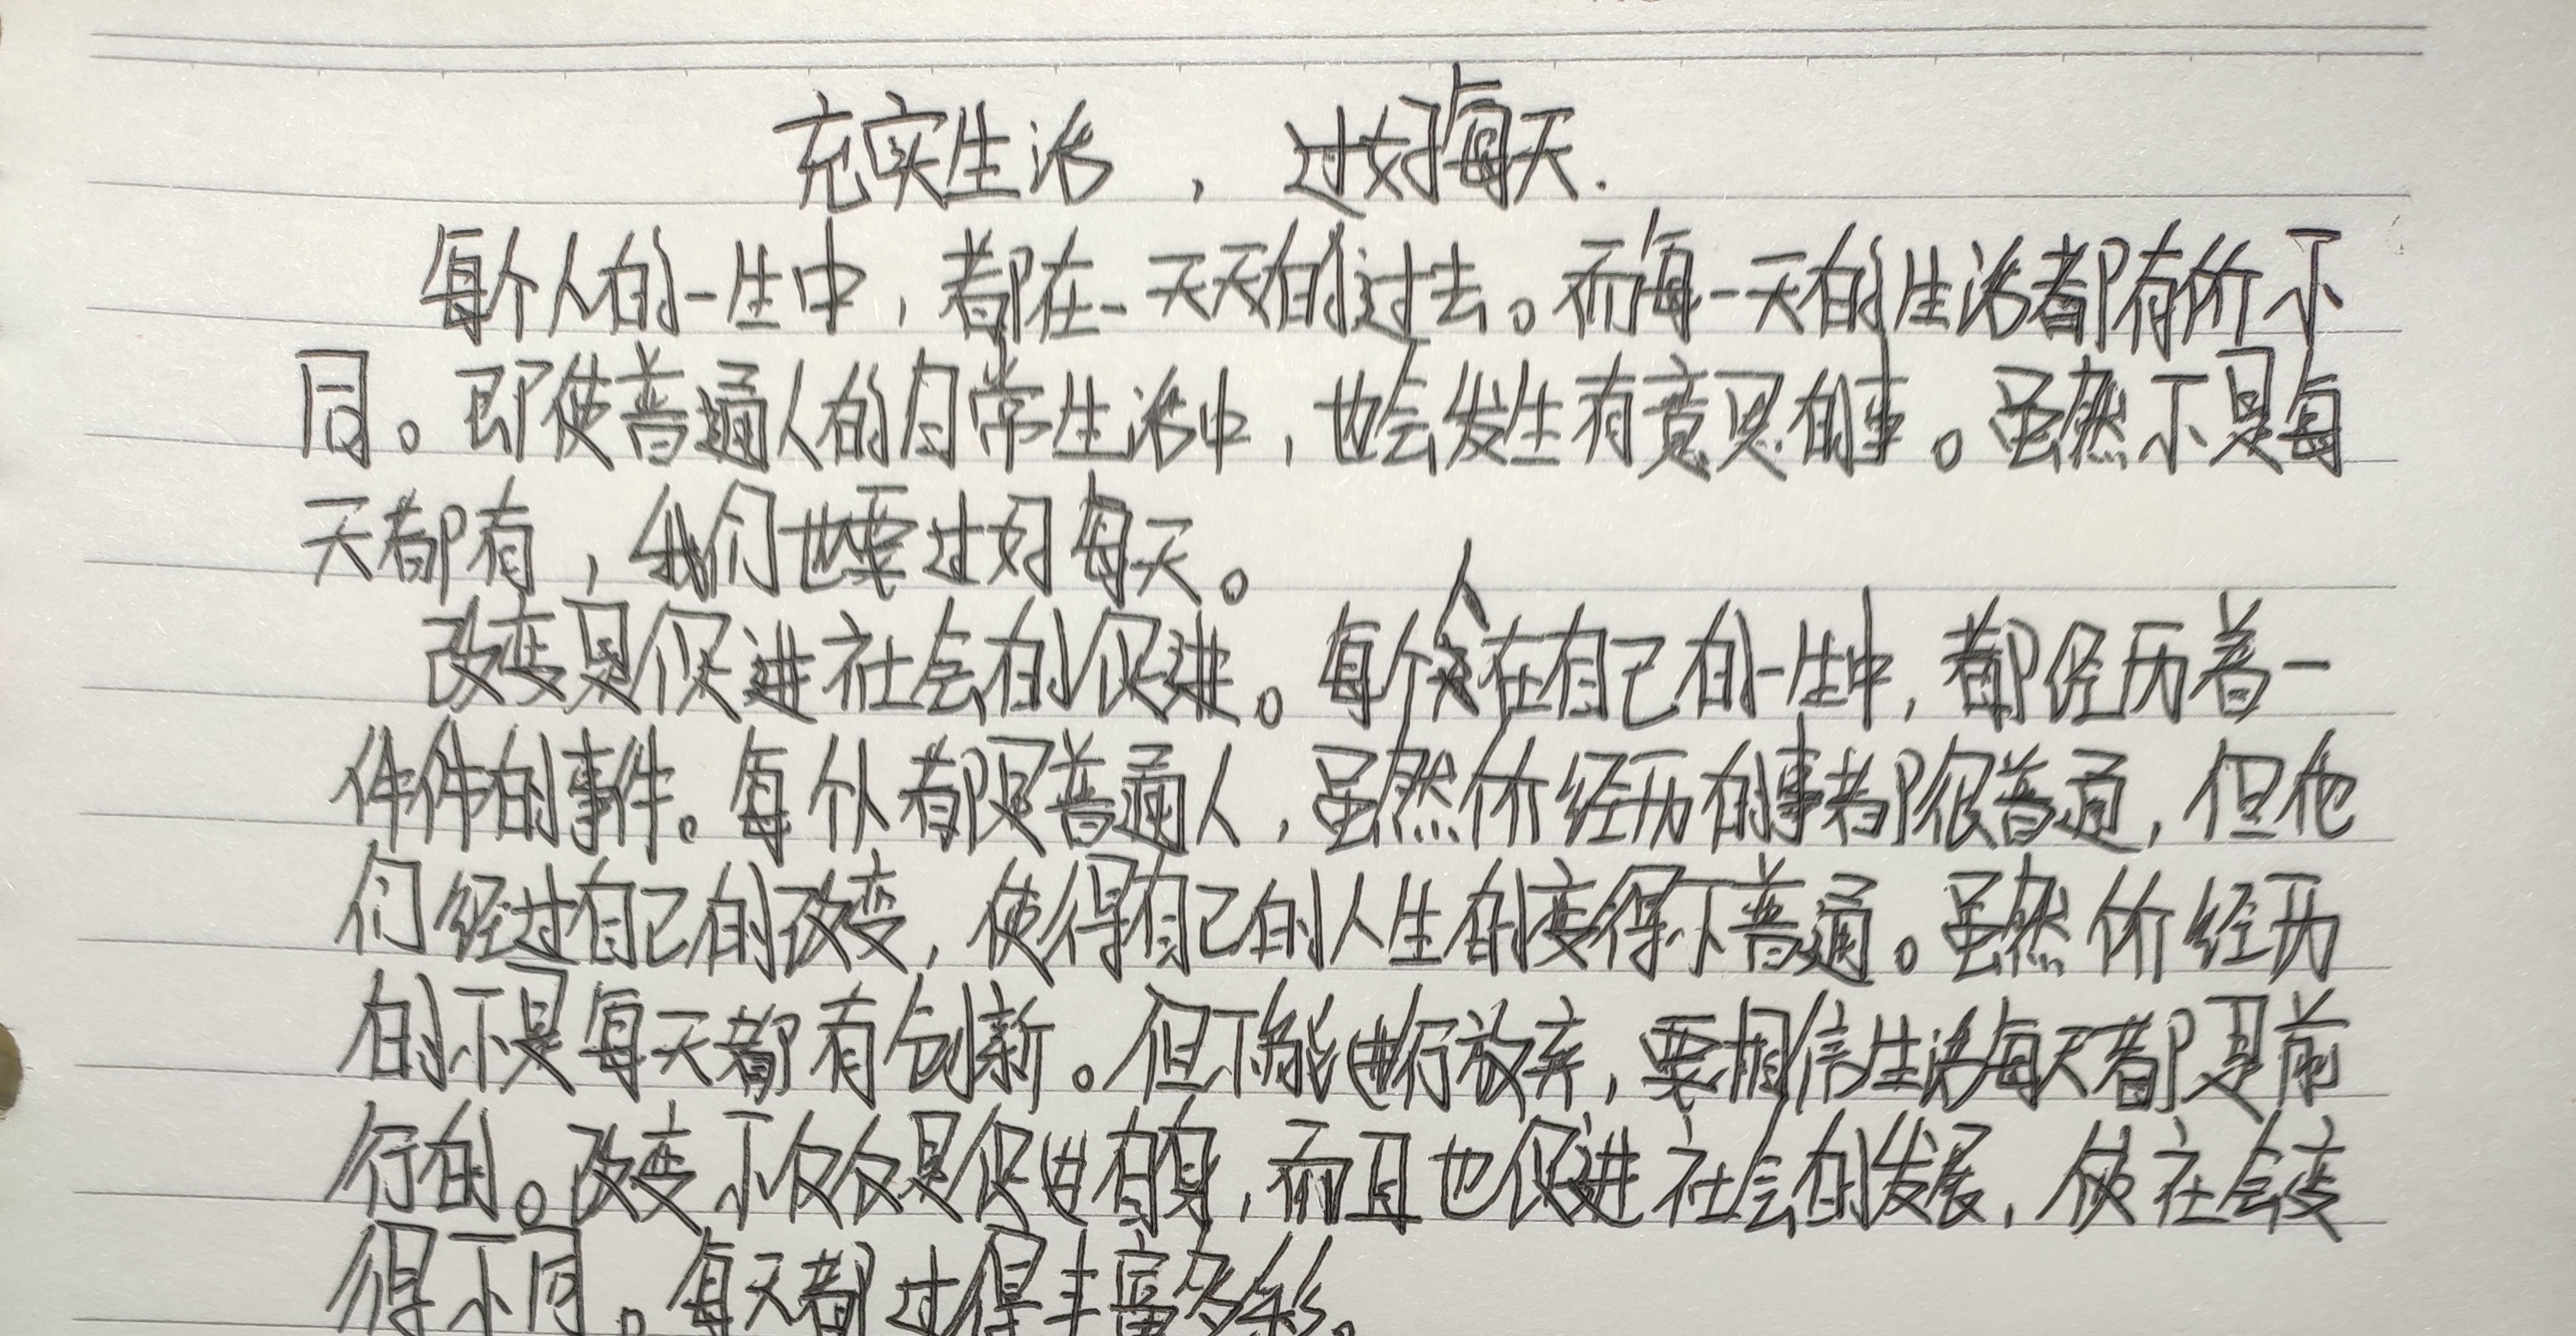 充实生活，过好每天.
每个人的一生中，都在一天天的过去。而每一天的生活都有所不
同。即使普通人的日常生活中，也会发生有意思的事。虽然不是每
天都有，我们也要过好每天。
改变是促进社会的促进。每个人在自己的一生中，都经历着一
件件的事件。每个人都是普通人，虽然所经历的事都很普通，但他
们经过自己的改变，使得自己的人生的变得不普通。虽然所经历
的不是每天都有创新。但不能进行放弃，要相信生活每天都是前
行的。改变不仅仅是促进自身，而且也促进社会的发展，使社会变
得不同。每天都过得丰富多彩。